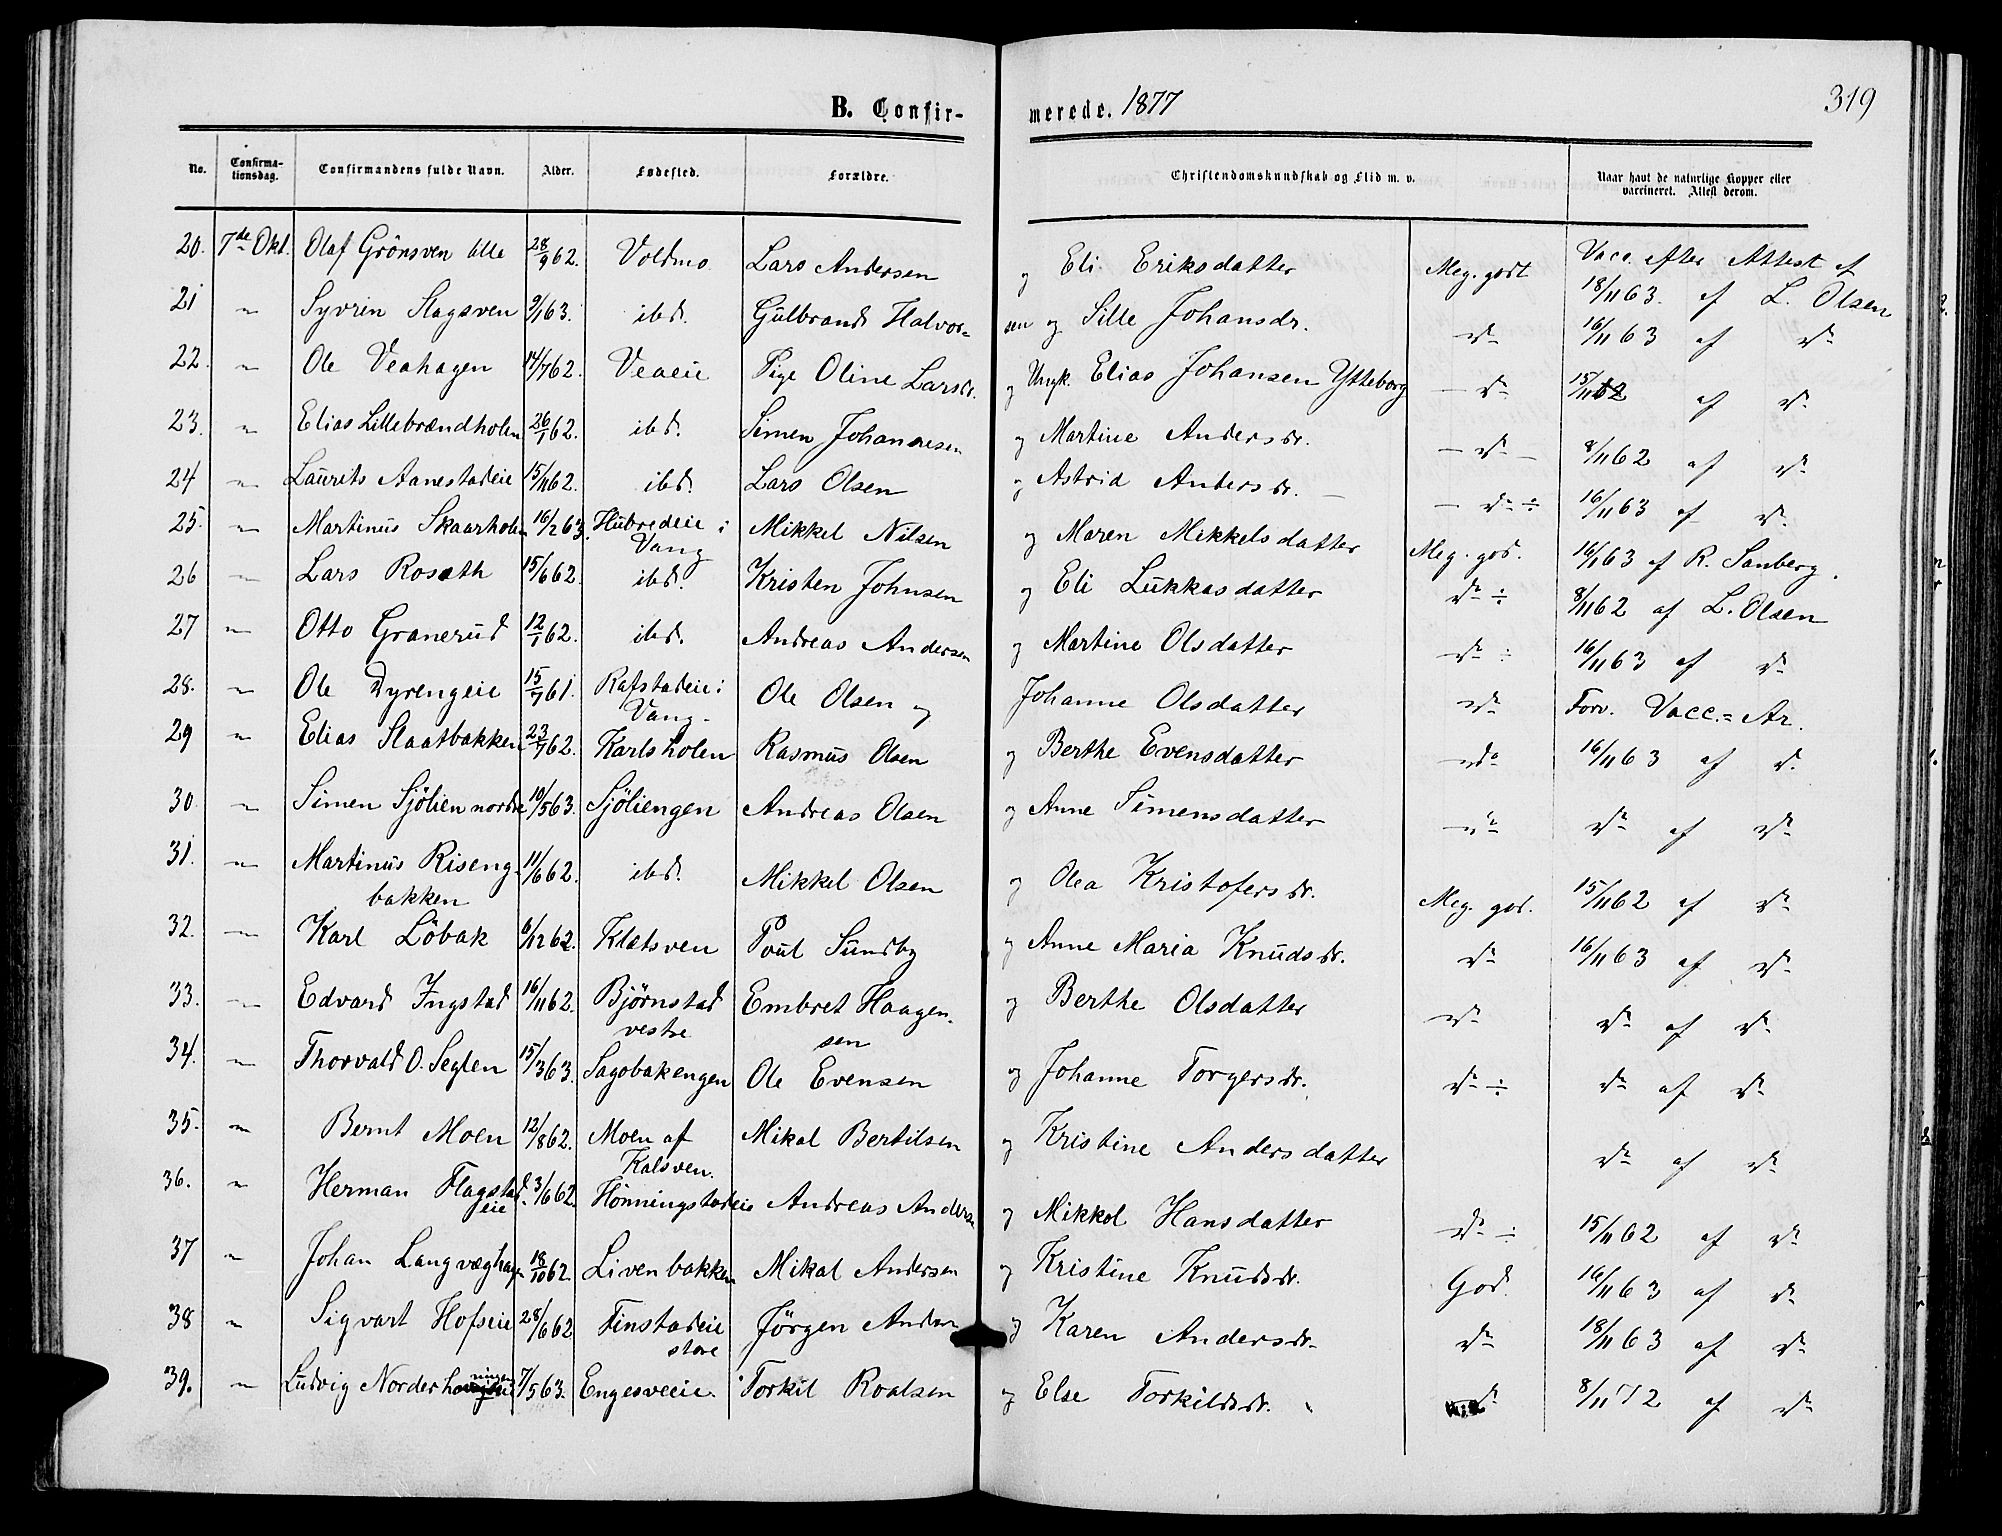 B. Confirmerede. 1877
319
No. Confirmationsdag. Confirmandens fulde Navn. Alder. Fødested. Forældre. Christendomskundskab og Flid m. v. Naar havt de naturlige Kopper eller vaccineret. Attest derom.
20. 7de Okt. Olaf Grönsven lille 28/9 62. Voldmo Lars Andersen og Eli Eriksdatter Meg. godt Vacc. efter Attest af 18/11 63. af L. Olsen
21 " Syvrin Slagsven 9/1 63. ibd. Gulbrand Halvorsen og Sille Johansdr. do 16/11 63 af do
22. " Ole Veahagen 14/7 62. Veaeie Pige Oline Larsdr. og Ungk. Elias Johansen Ytteborg do 15/11 62 af do
23. " Elias Lillebrændholen 26/1 62. ibd. Simen Johannesen og Martine Andersdr. do 8/11 62 af do
24 " Laurits Aanestadeie 15/11 62. ibd. Lars Olsen og Astrid Andersdr. do ÷ 16/11 63 af do
25. " Martinus Skaarholen 16/2 63. Hubredeie i Vang Mikkel Nilsen og Maren Mikkelsdatter Meg. god. 16/1 63 af R. Sanberg.
26 " Lars Roseth 15/6 62. ibd. Kristen Johnsen og Eli Lukkasdatter do ÷ 8/11 62 af L. Olsen
27 " Otto Granerud 12/1 62. ibd. Andreas Andersen og Martine Olsdatter do ÷ 16/11 63 af do
28. " Ole Dyrengeie 15/7 61. Rafstadeie i Vang. Ole Olsen og Johanne Olsdatter do Forv. Vacc.=Ar.
29 " Elias Slaatbakken 23/7 62. Karlsholen Rasmus Olsen og Berthe Evensdatter do 16/11 63 af do
30 " Simen Sjölien nordre 10/5 63. Sjöliengen Andreas Olsen og Anne Simensdatter do do af do
31. " Martinus Risengbakken 11/6 62. ibd. Mikkel Olsen og Olea Kristofersdr. Meg. god. 15/11 62 af do
32. " Karl Löbak 6/12 62. Kletsven Poul Sundby og Anne Maria Knudsdr. do 16/11 63 af do
33. " Edvard Ingstad 16/11 62. Björnstad vestre Embret Haagensen og Berthe Olsdatter do do af do
34. " Thorvald O. Seglen 15/3 63. Sagobakengen Ole Evensen og Johanne Torgersdr. do ÷ do af do
35. " Bernt Moen 12/8 62. Moen af Kalsven. Mikal Bertilsen og Kristine Andersdatter do af do
36. " Herman Flagstadeie 3/6 62. Hönningstadeie Andreas Andersen og Mikkol Hansdatter do ÷ 15/11 62 af do
37 " Johan Langvæghagen 18/10 62 Livenbakken Mikal Andersen og Kristine Knudsdr. God. 16/11 63 af do
38 " Sigvart Hofseie 28/6 62 Finstadeie store Jörgen Andersen og Karen Andersdr. do 18/11 63 af do
39. " Ludvig Norderhov 7/5 63. Engesveeie. Torkil Roalsen og Else Torkildsdr. do 8/11 72 af do